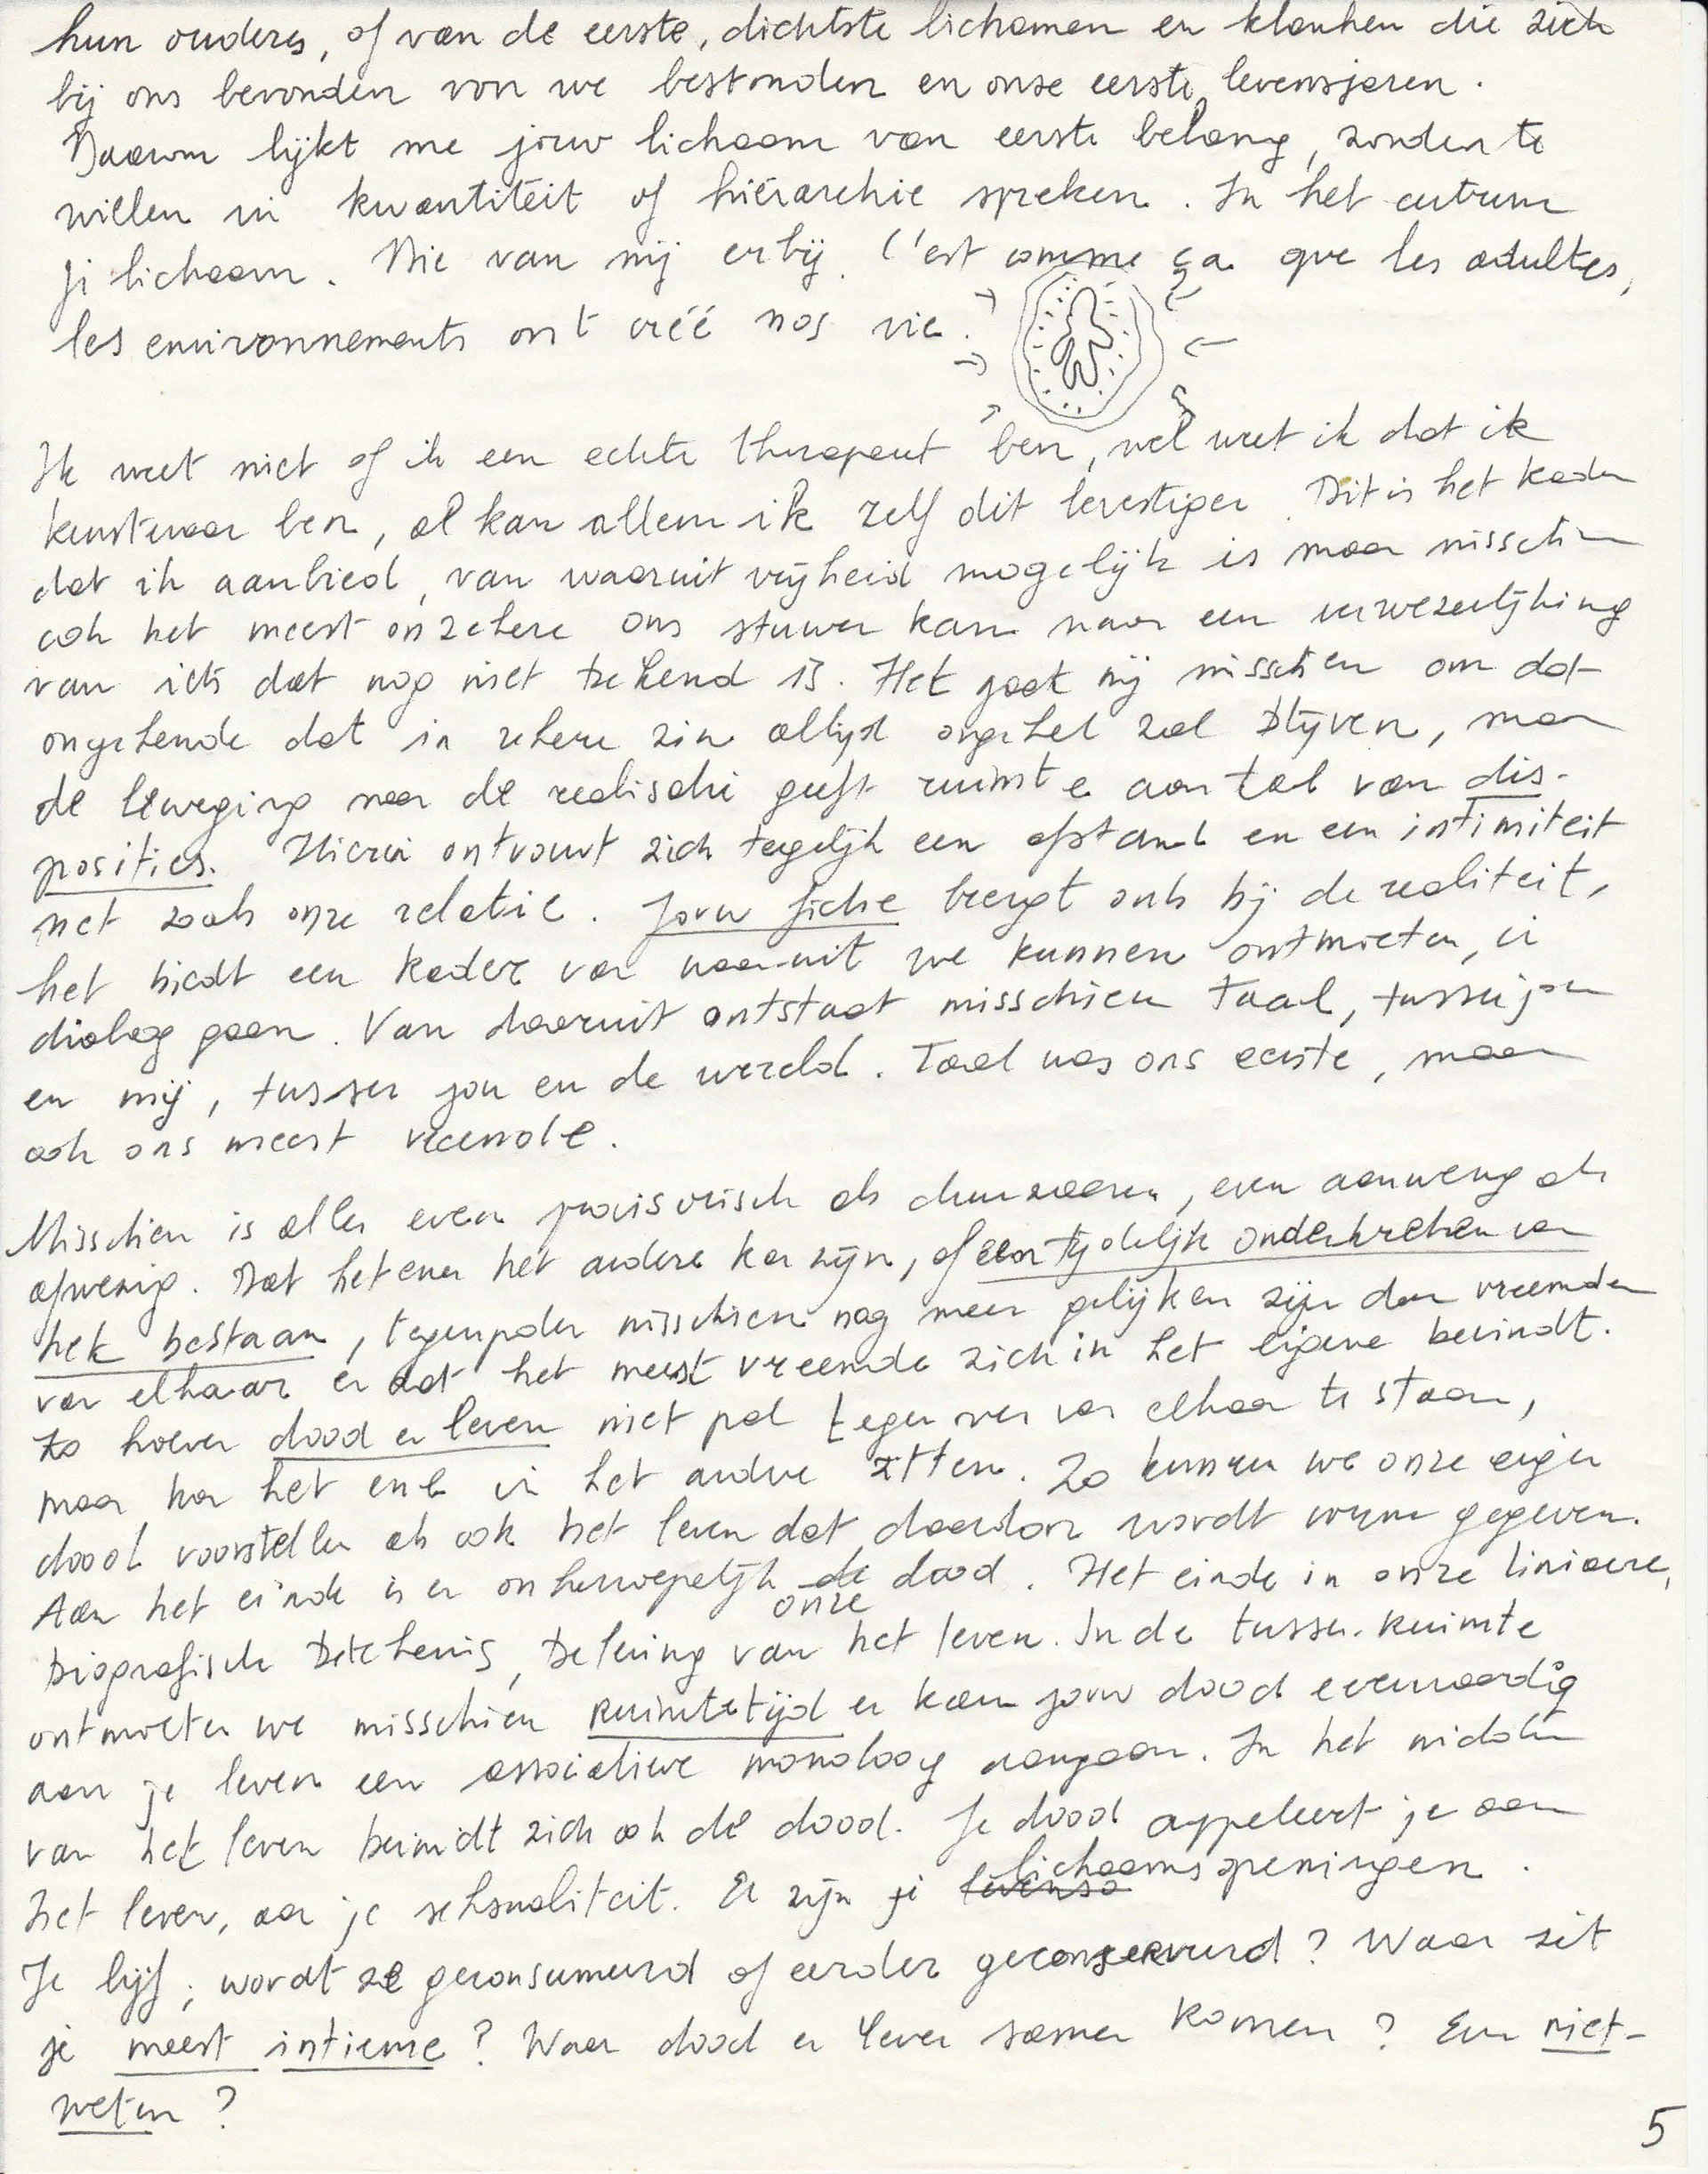 hun ouders, of van de eerste, dichtste lichamen en klanken die zich
bij ons bevonden von we bestonden en onze eerste levensjaren.
Daarom lijkt me jouw lichaam van eerste belang, zonder te
willen in kwantiteit of hiërarchie spreken. In het centrum
je lichaam. Die van mij erbij. C'est comme ça que les adultes,
les environnements ont créé nos vie.
Ik weet niet of ik een echte therapeut ben, wel weet ik dat ik
kunstenaar ben, al kan alleen ik zelf dit bevestigen. Dit is het kader
dat ik aanbied, van waaruit vrijheid mogelijk is maar misschien
ook het meest onzekere ons stuwen kan naar een verwezenlijking
van iets dat nog niet bekend is. Het gaat mij misschien om dat
ongekende dat in zekere zin altijd ongekend zal blijven, maar
de beweging naar de realisatie geeft ruimte aan tal van dis-
posities. Hierin ontvouwt zich tegelijk een afstand en een intimiteit
net zoals onze relatie. Jouw fiche brengt ons bij de realiteit,
het biedt een kader van waaruit we kunnen ontmoeten, in
dialoog gaan. Van daaruit ontstaat misschien taal, tussen jou
en mij, tussen jou en de wereld. Taal was ons eerste, maar
ook ons meest vreemde.
Misschien is alles even provisorisch als duurzaam, even aanwezig als
afwezig. Dat het ene het andere kan zijn, of een tijdelijk onderbreken van
het bestaan, tegenpolen misschien nog meer gelijken zijn dan vreemden
van elkaar en dat het meest vreemde zich in het eigene bevindt.
Zo hoeven dood en leven niet pal tegenover van elkaar te staan,
maar kan het ene in het andere zitten. Zo kunnen we onze eigen
dood voorstellen als ook het leven dat daardoor wordt vorm gegeven.
Aan het einde is er onherroepelijk de onze dood. Het einde in onze liniaire,
biografische betekenis, beleving van het leven. In de tussen-ruimte
ontmoeten we misschien ruimtetijd en kan jouw dood evenwaardig
aan je leven een associatieve monoloog aangaan. In het midden
van het leven bevindt zich ook de dood. Je dood appeleert je aan
het leven, aan je seksualiteit. Er zijn je lichaamsopeningen.
Je lijf, wordt ze geconsumeerd of eerder geconserveerd? Waar zit
je meest intieme? Waar dood en leven samen komen? Een niet-
weten?
5